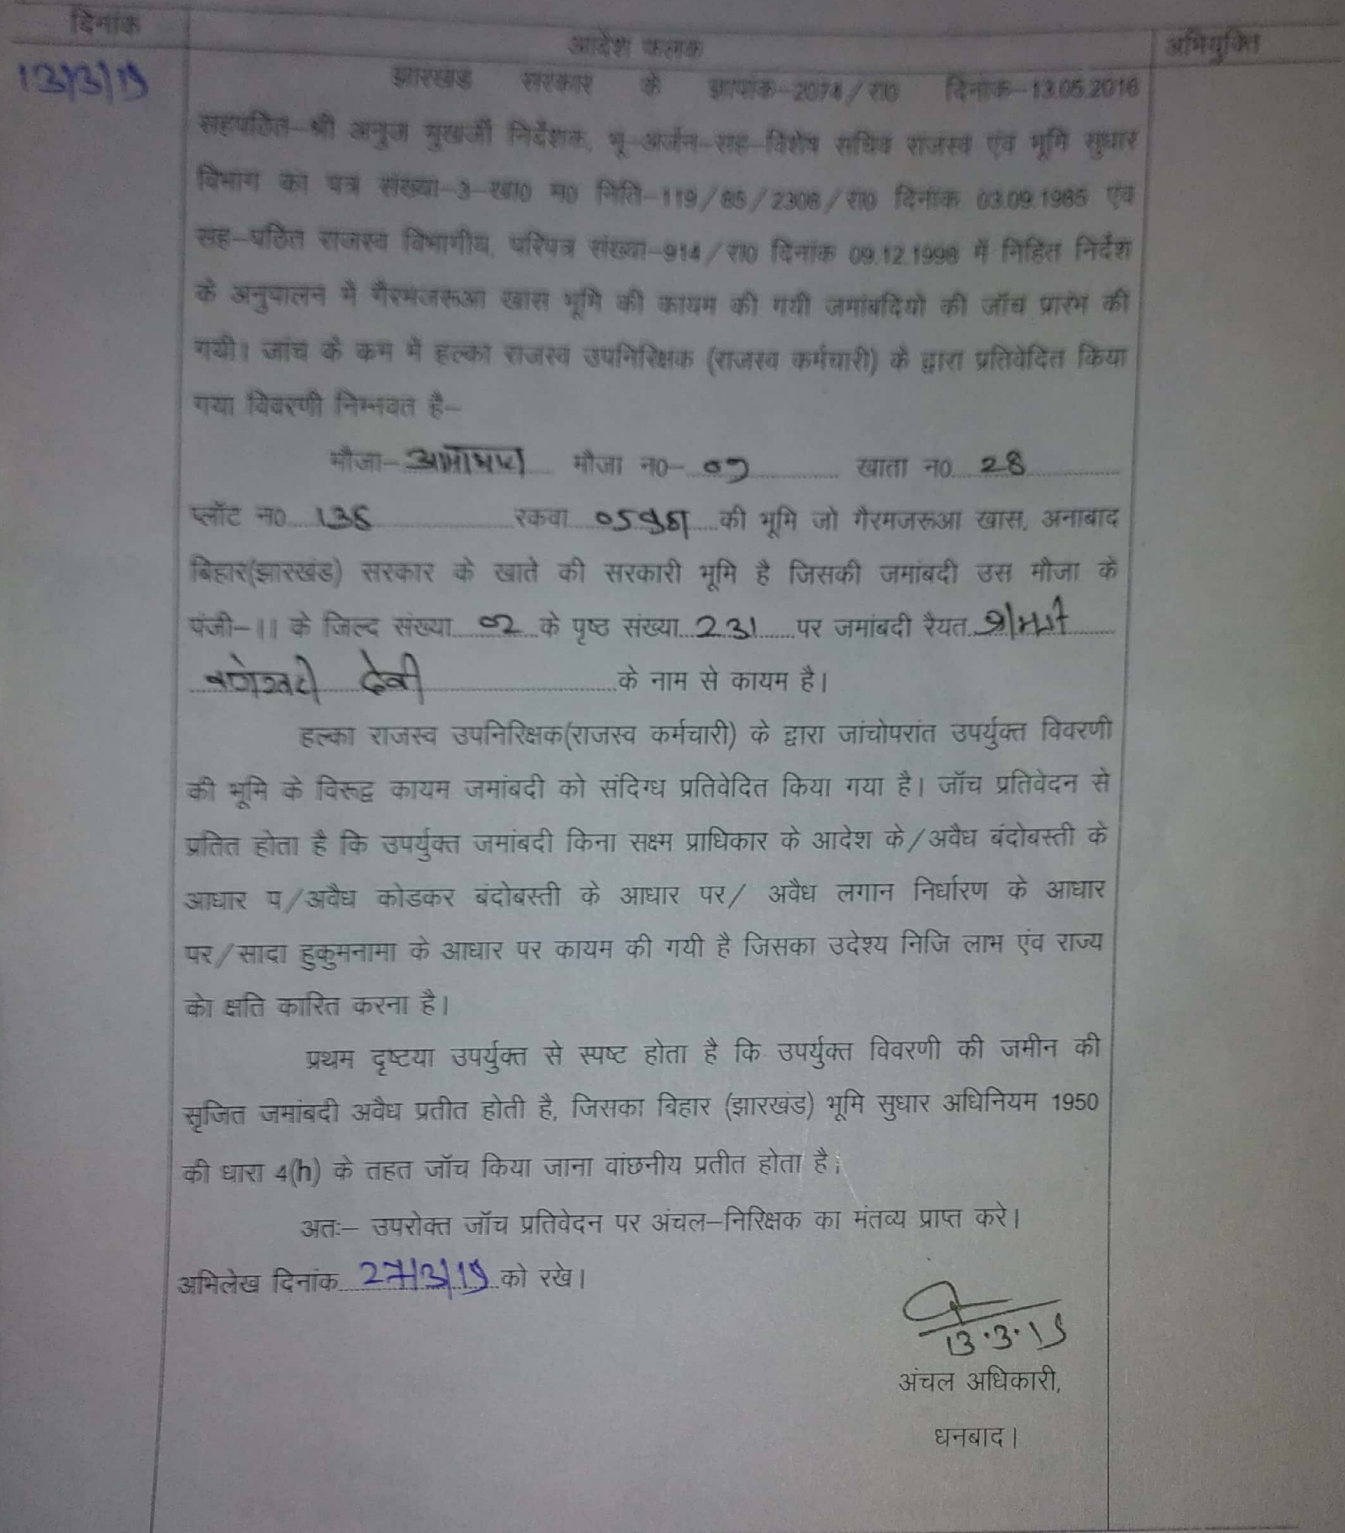 दिनांक
आदेश फलक
अभियुक्ति
13/3/19
झारखंड सरकार के ज्ञापांक-2074/रा0 दिनांक-13.05.2016
सहपठित-श्री अनुज मुखर्जी निर्देशक, भू-अर्जन-सह-विशेष सचिव राजस्व एंव भूमि सुधार
विभाग का पत्र संख्या-3-खा0 म0 निति-119/85/2308/रा0 दिनांक 03.09.1985 एंव
सह-पठित राजस्व विभागीय, परिपत्र संख्या-914/रा0 दिनांक 09.12.1998 में निहित निर्देश
के अनुपालन में गैरमजरूआ खास भूमि की कायम की गयी जमांबदियो की जॉच प्रारंभ की
गयी। जांच के कम में हल्का राजस्व उपनिरिक्षक (राजस्व कर्मचारी) के द्वारा प्रतिवेदित किया
गया विवरणी निम्नवत है-
मौजा- मौजा न0- 07 खाता न0 28
प्लॉट न0 138 रकवा की भूमि जो गैरमजरूआ खास, अनाबाद
बिहार(झारखंड) सरकार के खाते की सरकारी भूमि है जिसकी जमांबदी उस मौजा के
पंजी-।। के जिल्द संख्या 02 के पृष्ठ संख्या 231 पर जमांबदी रैयत श्रीमती
देवी के नाम से कायम है।
हल्का राजस्व उपनिरिक्षक(राजस्व कर्मचारी) के द्वारा जांचोपरांत उपर्युक्त विवरणी
की भूमि के विरूद्व कायम जमांबदी को संदिग्ध प्रतिवेदित किया गया है। जॉच प्रतिवेदन से
प्रतित होता है कि उपर्युक्त जमांबदी किना सक्ष्म प्राधिकार के आदेश के/अवैध बंदोबस्ती के
आधार प/अवैध कोडकर बंदोबस्ती के आधार पर/ अवैध लगान निर्धारण के आधार
पर/सादा हुकुमनामा के आधार पर कायम की गयी है जिसका उदेश्य निजि लाभ एंव राज्य
को क्षति कारित करना है।
प्रथम दृष्टया उपर्युक्त से स्पष्ट होता है कि उपर्युक्त विवरणी की जमीन की
सृजित जमांबदी अवैध प्रतीत होती है, जिसका बिहार (झारखंड) भूमि सुधार अधिनियम 1950
की धारा 4(h) के तहत जॉच किया जाना वांछनीय प्रतीत होता है।
अतः- उपरोक्त जॉच प्रतिवेदन पर अंचल-निरिक्षक का मंतव्य प्राप्त करे।
अभिलेख दिनांक 27/3/19 को रखे।
13.3.19
अंचल अधिकारी,
धनबाद।